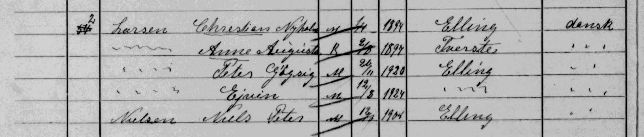 2 Larsen Christian Nyholm M 1894 Elling dansk
" Anne Augusta K 1897 Tversted "
" Peter M 24/11 1920 Elling "
" Ejvin M 12/8 1924 " "
Nielsen Niels Peter M 1904 Elling "